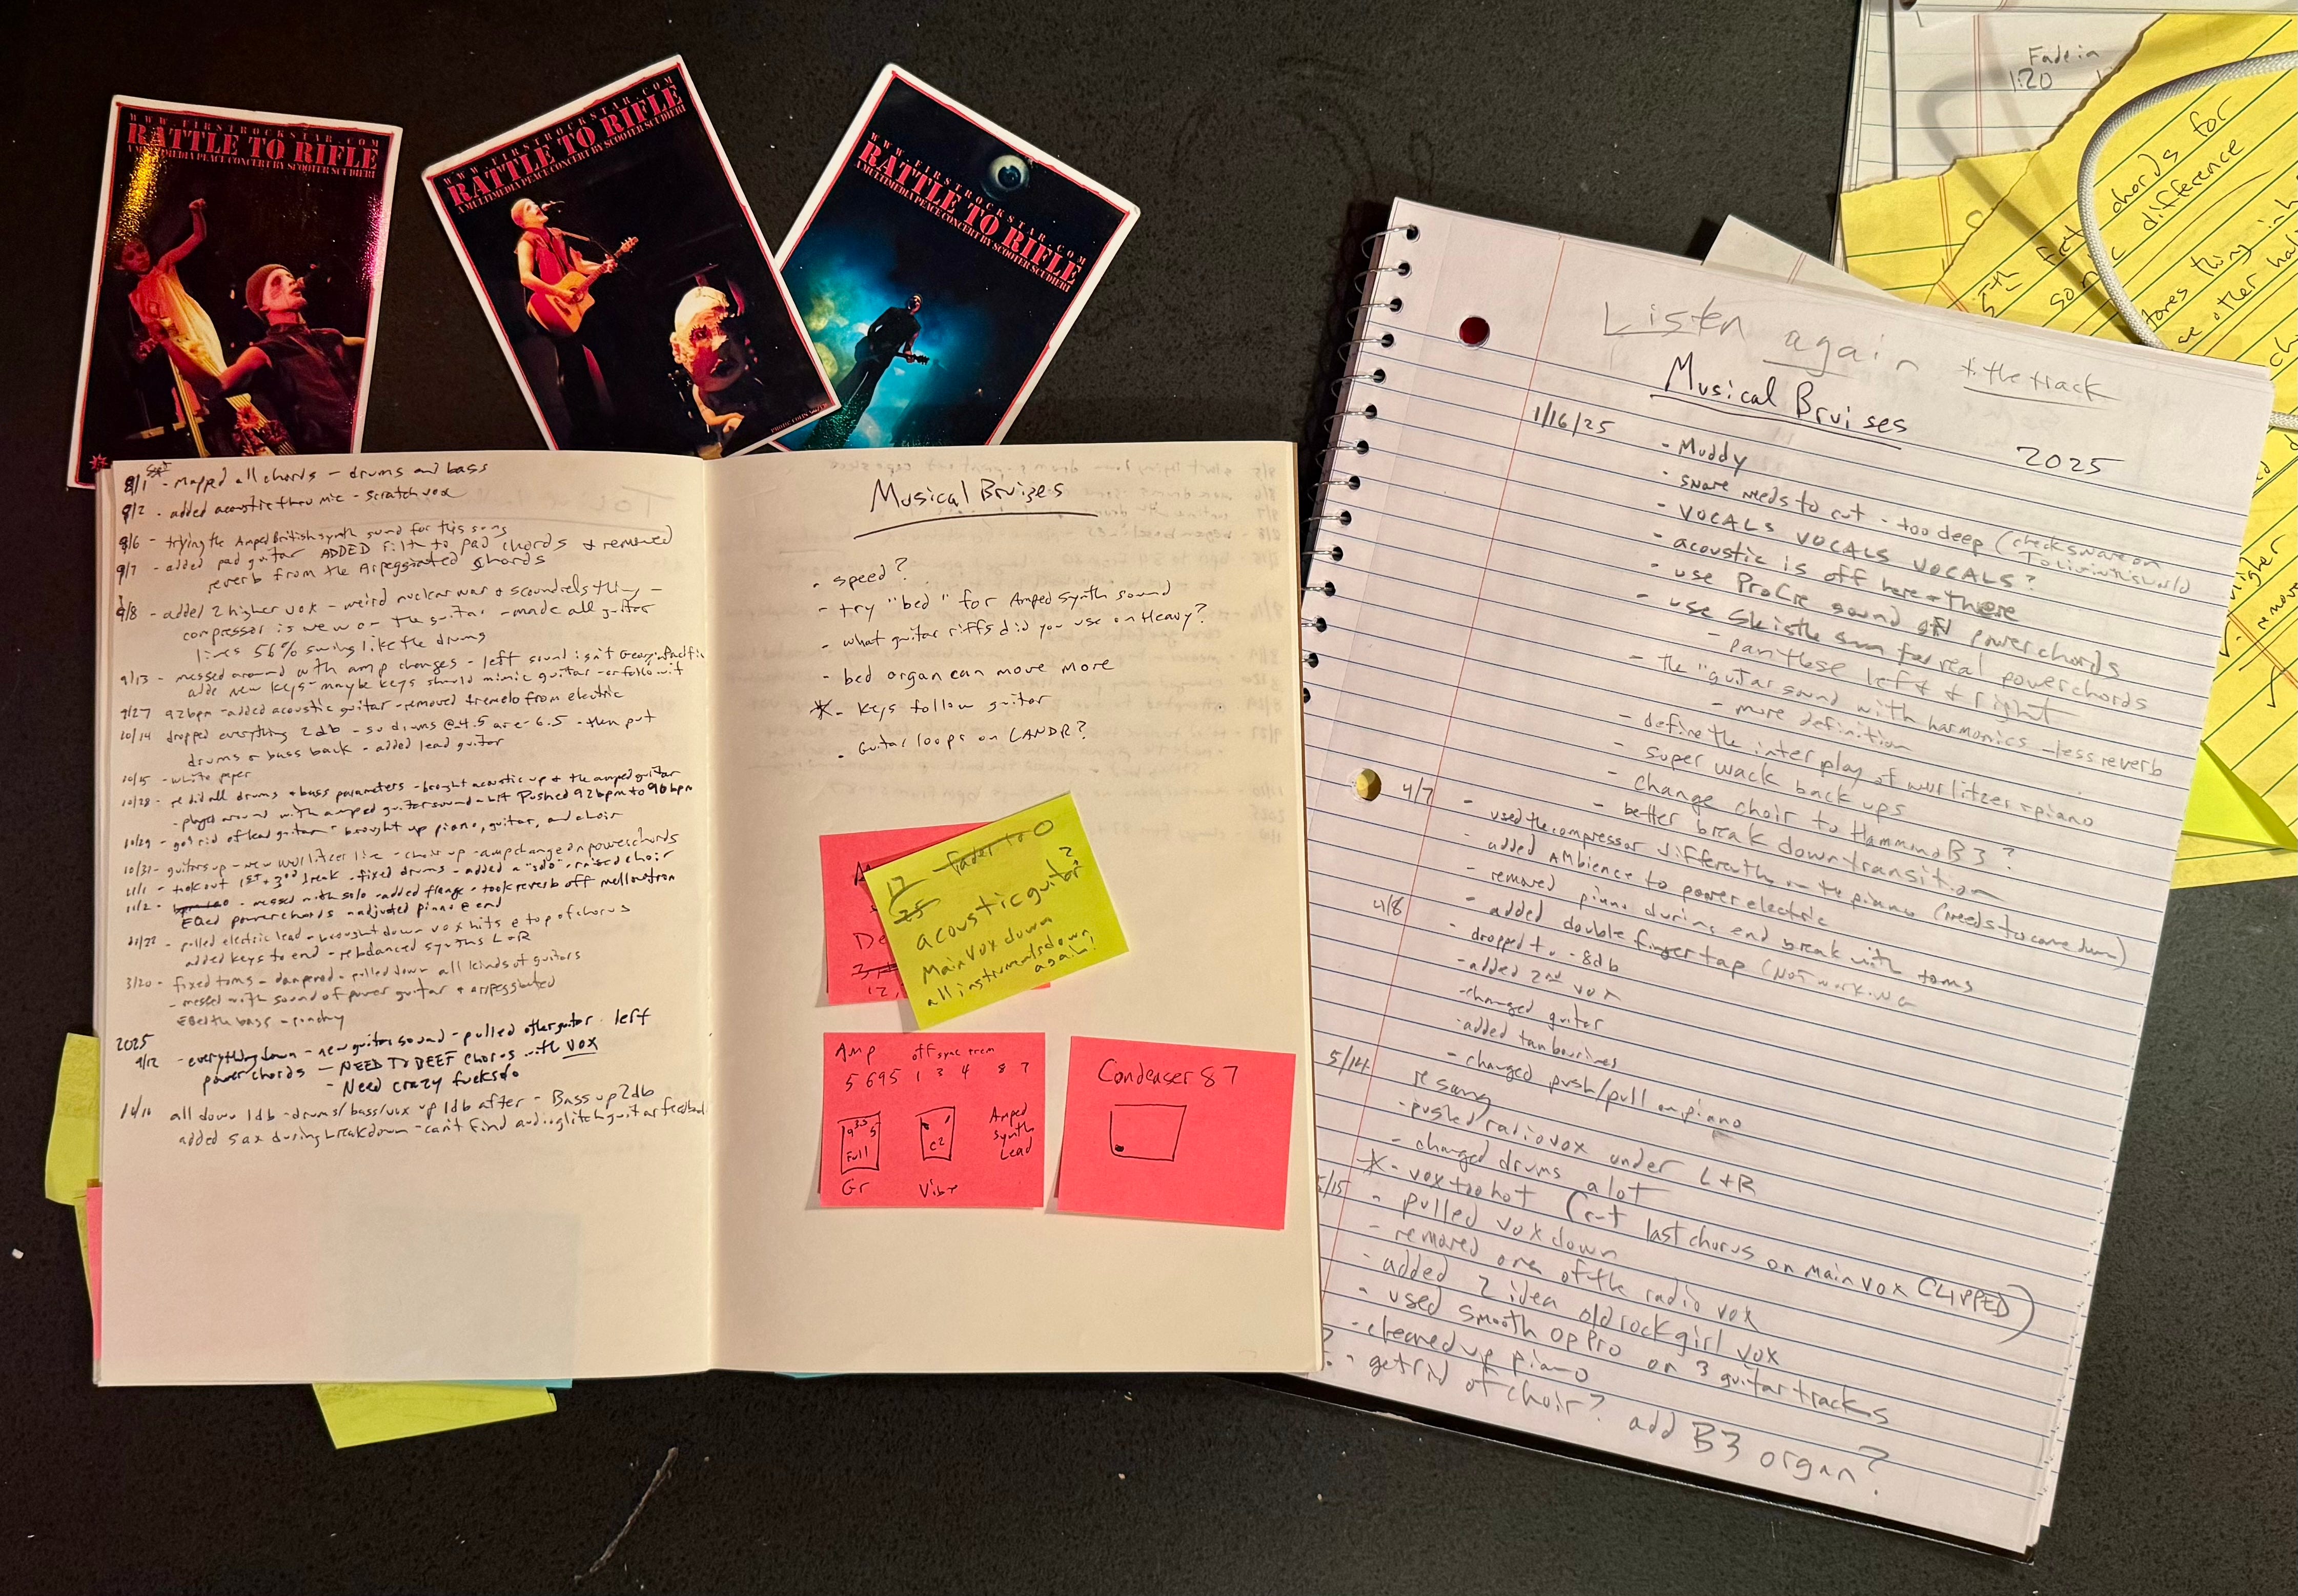 WWW.FIRSTROCKSTAR.COM
RATTLE TO RIFLE
A MULTIMEDIA PEACE CONCERT BY SCOOTER SCUDIERI
WWW.FIRSTROCKSTAR.COM
RATTLE TO RIFLE
A MULTIMEDIA PEACE CONCERT BY SCOOTER SCUDIERI
WWW.FIRSTROCKSTAR.COM
RATTLE TO RIFLE
A MULTIMEDIA PEACE CONCERT BY SCOOTER SCUDIERI
- mapped all chords - drums and bass
9/2 - added acoustic thru mic - scratch vox
9/6 - trying the Amped British synth sound for this song
9/7 - added pad guitar ADDED Filth to pad chords & removed
reverb from the Arpeggiated chords
9/8 - added 2 higher vox - weird nuclear war & scoundrels thing -
compressor is new on the guitar - made all guitar
lines 56% swing like the drums
9/13 - messed around with amp changes - left sound isn't Georgia Pacific
adde new keys - maybe keys should mimic guitar - or follow it
9/27 92bpm - added acoustic guitar - removed tremelo from electric
10/14 dropped everything 2db - so drums @ -4.5 are -6.5 - then put
drums & bass back - added lead guitar
10/15 - white paper
10/28 - re did all drums & bass parameters - brought acoustic up & the amped guitar
- played around with amped guitar sound - bit Pushed 92bpm to 96bpm
10/29 - got rid of lead guitar - brought up piano, guitar, and choir
10/31 - guitars up - new wurlitzer line - choir up - amp change on powerchords
11/1 - took out 1st & 3rd break - fixed drums - added a "solo" - raised choir
11/2 - messed with solo - added flange - took reverb off mellowtron
EQed powerchords - adjusted piano @ end
pulled electric lead - brought down vox hits @ top of chorus
added keys to end - rebalanced synths L + R
3/20 - fixed toms - dampered - pulled down all kinds of guitars
- messed with sound of power guitar & arpeggiated
EQed the bass - punchy
2025
9/12 - everything down - new guitar sound - pulled other guitar left
power chords - NEED TO BEEF chorus with VOX
- Need crazy fuck solo
all down 1db - drums/bass/vox up 1db after - Bass up 2db
added sax during breakdown - can't find audio glitch guitar feedback
Musical Bruizes
- speed?
- try "bed" for Amped synth sound
- what guitar riffs did you use on Heavy?
- bed organ can move more
* - Keys follow guitar
- Guitar loops on LANDR?
17 fader to 0
25
acoustic guitar?
main vox down
all instruments down
again!
Amp off sync trem
5 6 9 5 1 3 4 8 7
Full
C2
Amped
synth
Lead
Gr Vibr
Condenser 87
Listen again title track
Musical Bruises
2025
1/16/25 - Muddy
- snare needs to cut - too deep (check snare on
To Live in this world
- VOCALS VOCALS VOCALS?
- acoustic is off here & there
- use ProCre sound on powerchords
- use for real powerchords
- pan these left & right
- the "guitar sound with harmonics - less reverb
- more definition
- define the interplay of wurlitzer & piano
- super wack back ups
- change choir to Hammond B3?
- better break down transition
4/7 - used the compressor differently on the piano (needs to come down)
- added AMbience to power electric
- removed piano during end break with toms
4/8 - added double finger tap (NOT WORKING
- dropped to -8db
- added 2nd vox
- changed guitar
- added tambourines
- changed push/pull on piano
5/14 resang
- pushed radio vox under L + R
- changed drums a lot
* - vox too hot (cut last chorus on main vox CLIPPED)
5/15 - pulled vox down
- removed one of the radio vox
- added 2 idea old rock girl vox
- used smooth op Pro on 3 guitar tracks
- cleaned up piano
- get rid of choir? add B3 organ?
Fade in
1:20
5th fret chords for
sonic difference